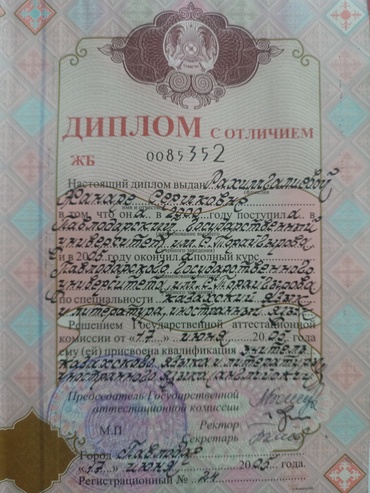 ДИПЛОМ С ОТЛИЧИЕМ
ЖБ 0085352
Настоящий диплом выдан Рахимгалиевой
Жанаре Сериковне
в том, что она в 2000 году поступила в
Павлодарский Государственный
университет им. С. Торайгырова
и в 2005 году окончила полный курс
Павлодарского Государственного
университета им. С. Торайгырова
по специальности казахский язык
и литература, иностранный язык
Решением Государственной аттестационной
комиссии от «17» июня 2005 года
ему (ей) присвоена квалификация учитель
казахского языка и литературы,
иностранного языка (английский)
Председатель Государственной
аттестационной комиссии
Ректор
М.П. Секретарь
Город Павлодар
«17» июня 2005 года.
Регистрационный № 24